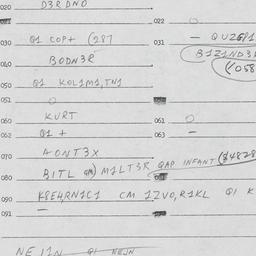 020 D3RDNO
022 O
030 Q1 COP+ (287 031 — QUZGP1
B1Z1ND3
040 BODN3R (4058
050 Q1 KOL1M1,TN1
051 O
060 KURT 061 O
062 Q1 + 063 —
070 AONT3X
080 BITL M1LT3R GAP INFANT ($4828
090 K8E4RN1C1 CM 1ZVO,R1KL Q1 K
091 —
NE11N Q1 NEJN